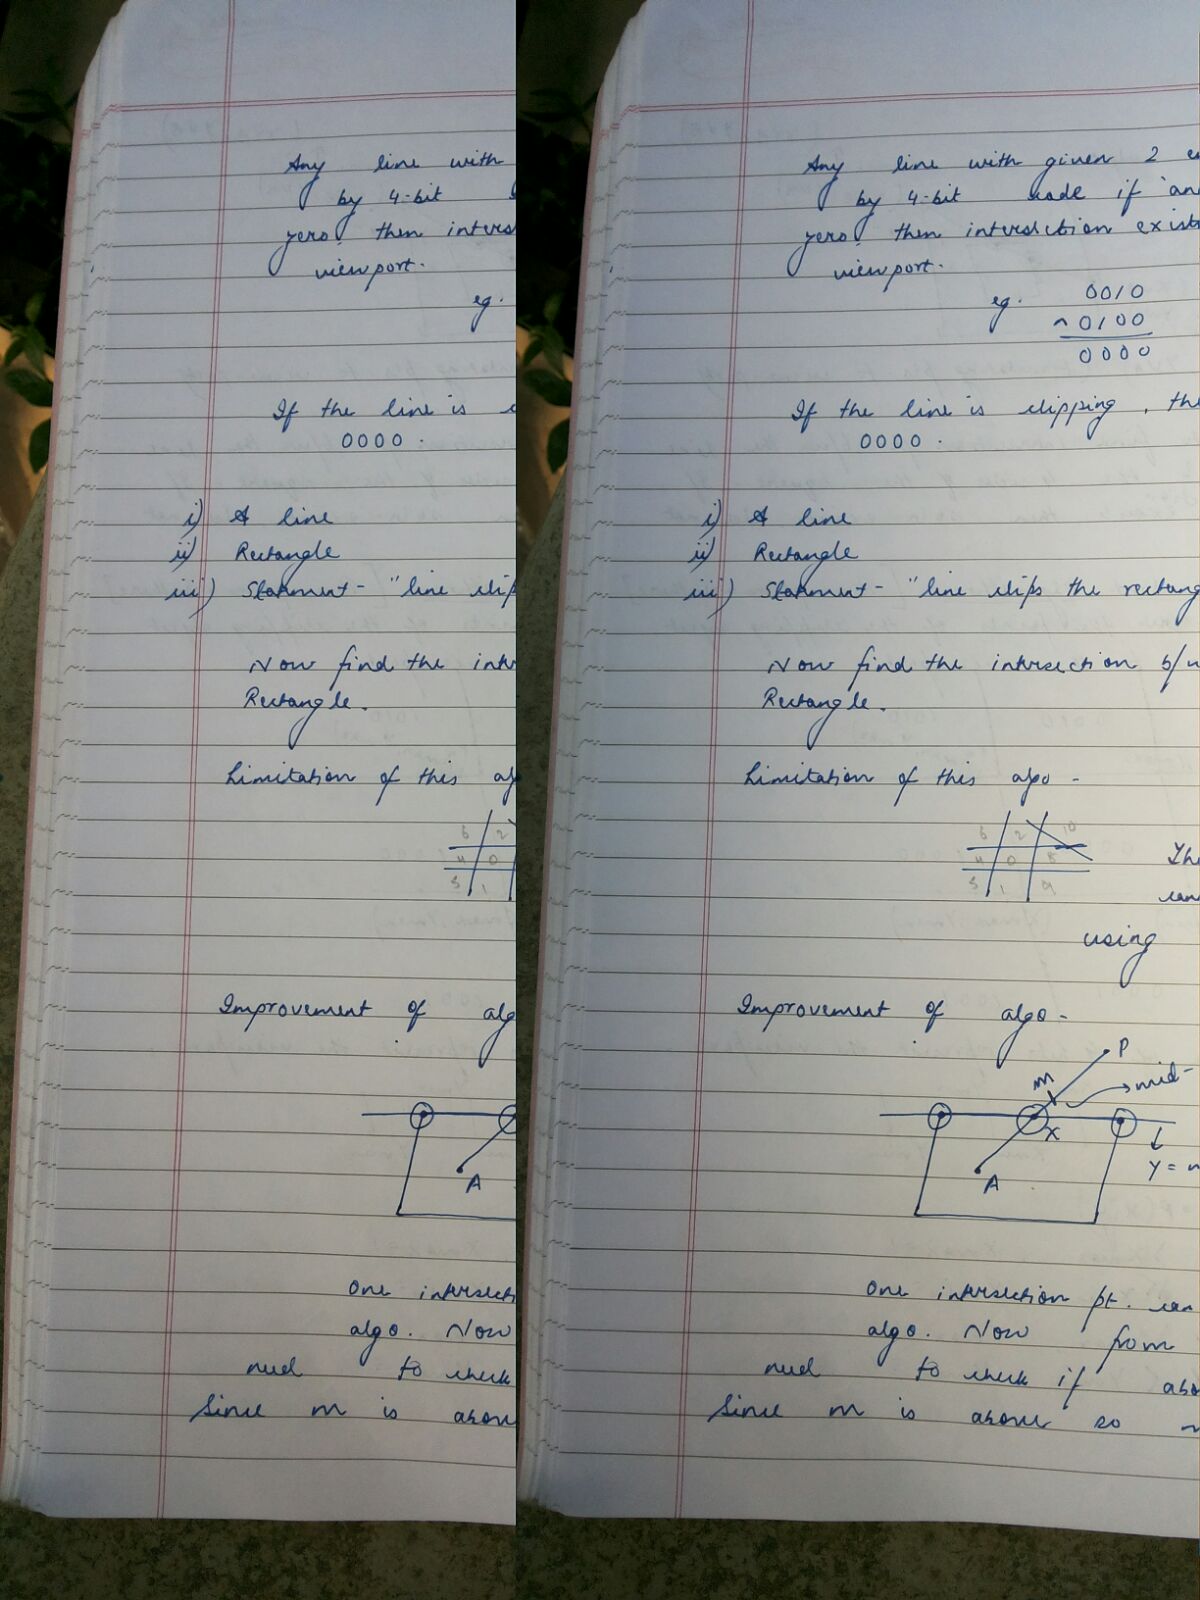 Any line with
by 4-bit
zero, then inters
viewport.
eg.
If the line is
0000.
i) A line
ii) Rectangle
iii) Statement - "line clip
Now find the inter
Rectangle.
Limitation of this alg
6 2
4 0
5 1
Improvement of alg
A
One intersecti
algo. Now
need to check
Since m is above
Any line with given 2 e
by 4-bit code if 'an
zero, then intersection exist
viewport.
eg. 0010
^ 0100
0000
If the line is clipping, the
0000.
i) A line
ii) Rectangle
iii) Statement - "line clips the rectang
Now find the intersection b/w
Rectangle.
Limitation of this algo -
6 2 10
4 0 8 The
5 1 9 can
using
Improvement of algo -
P
m mid-
X
A y = m
One intersection pt. can
algo. Now from
need to check if abo
Since m is above so